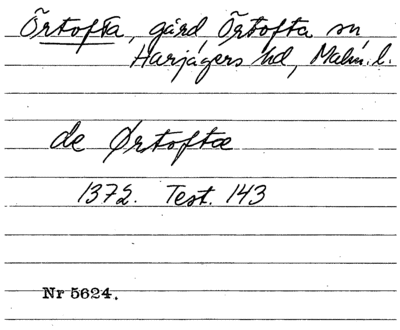 Örtofta, gård, Örtofta sn
Harjagers hd, Malm. l.
de Ørtoftæ
1372. Test. 143
Nr 5624.